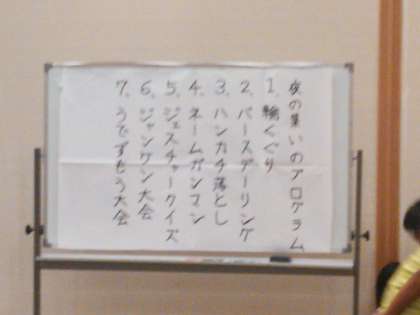 夜の集いのプログラム
1、輪くぐり
2、バースデーリング
3、ハンカチ落とし
4、ネームガンマン
5、ジェスチャークイズ
6、ジャンケン大会
7、うでずもう大会